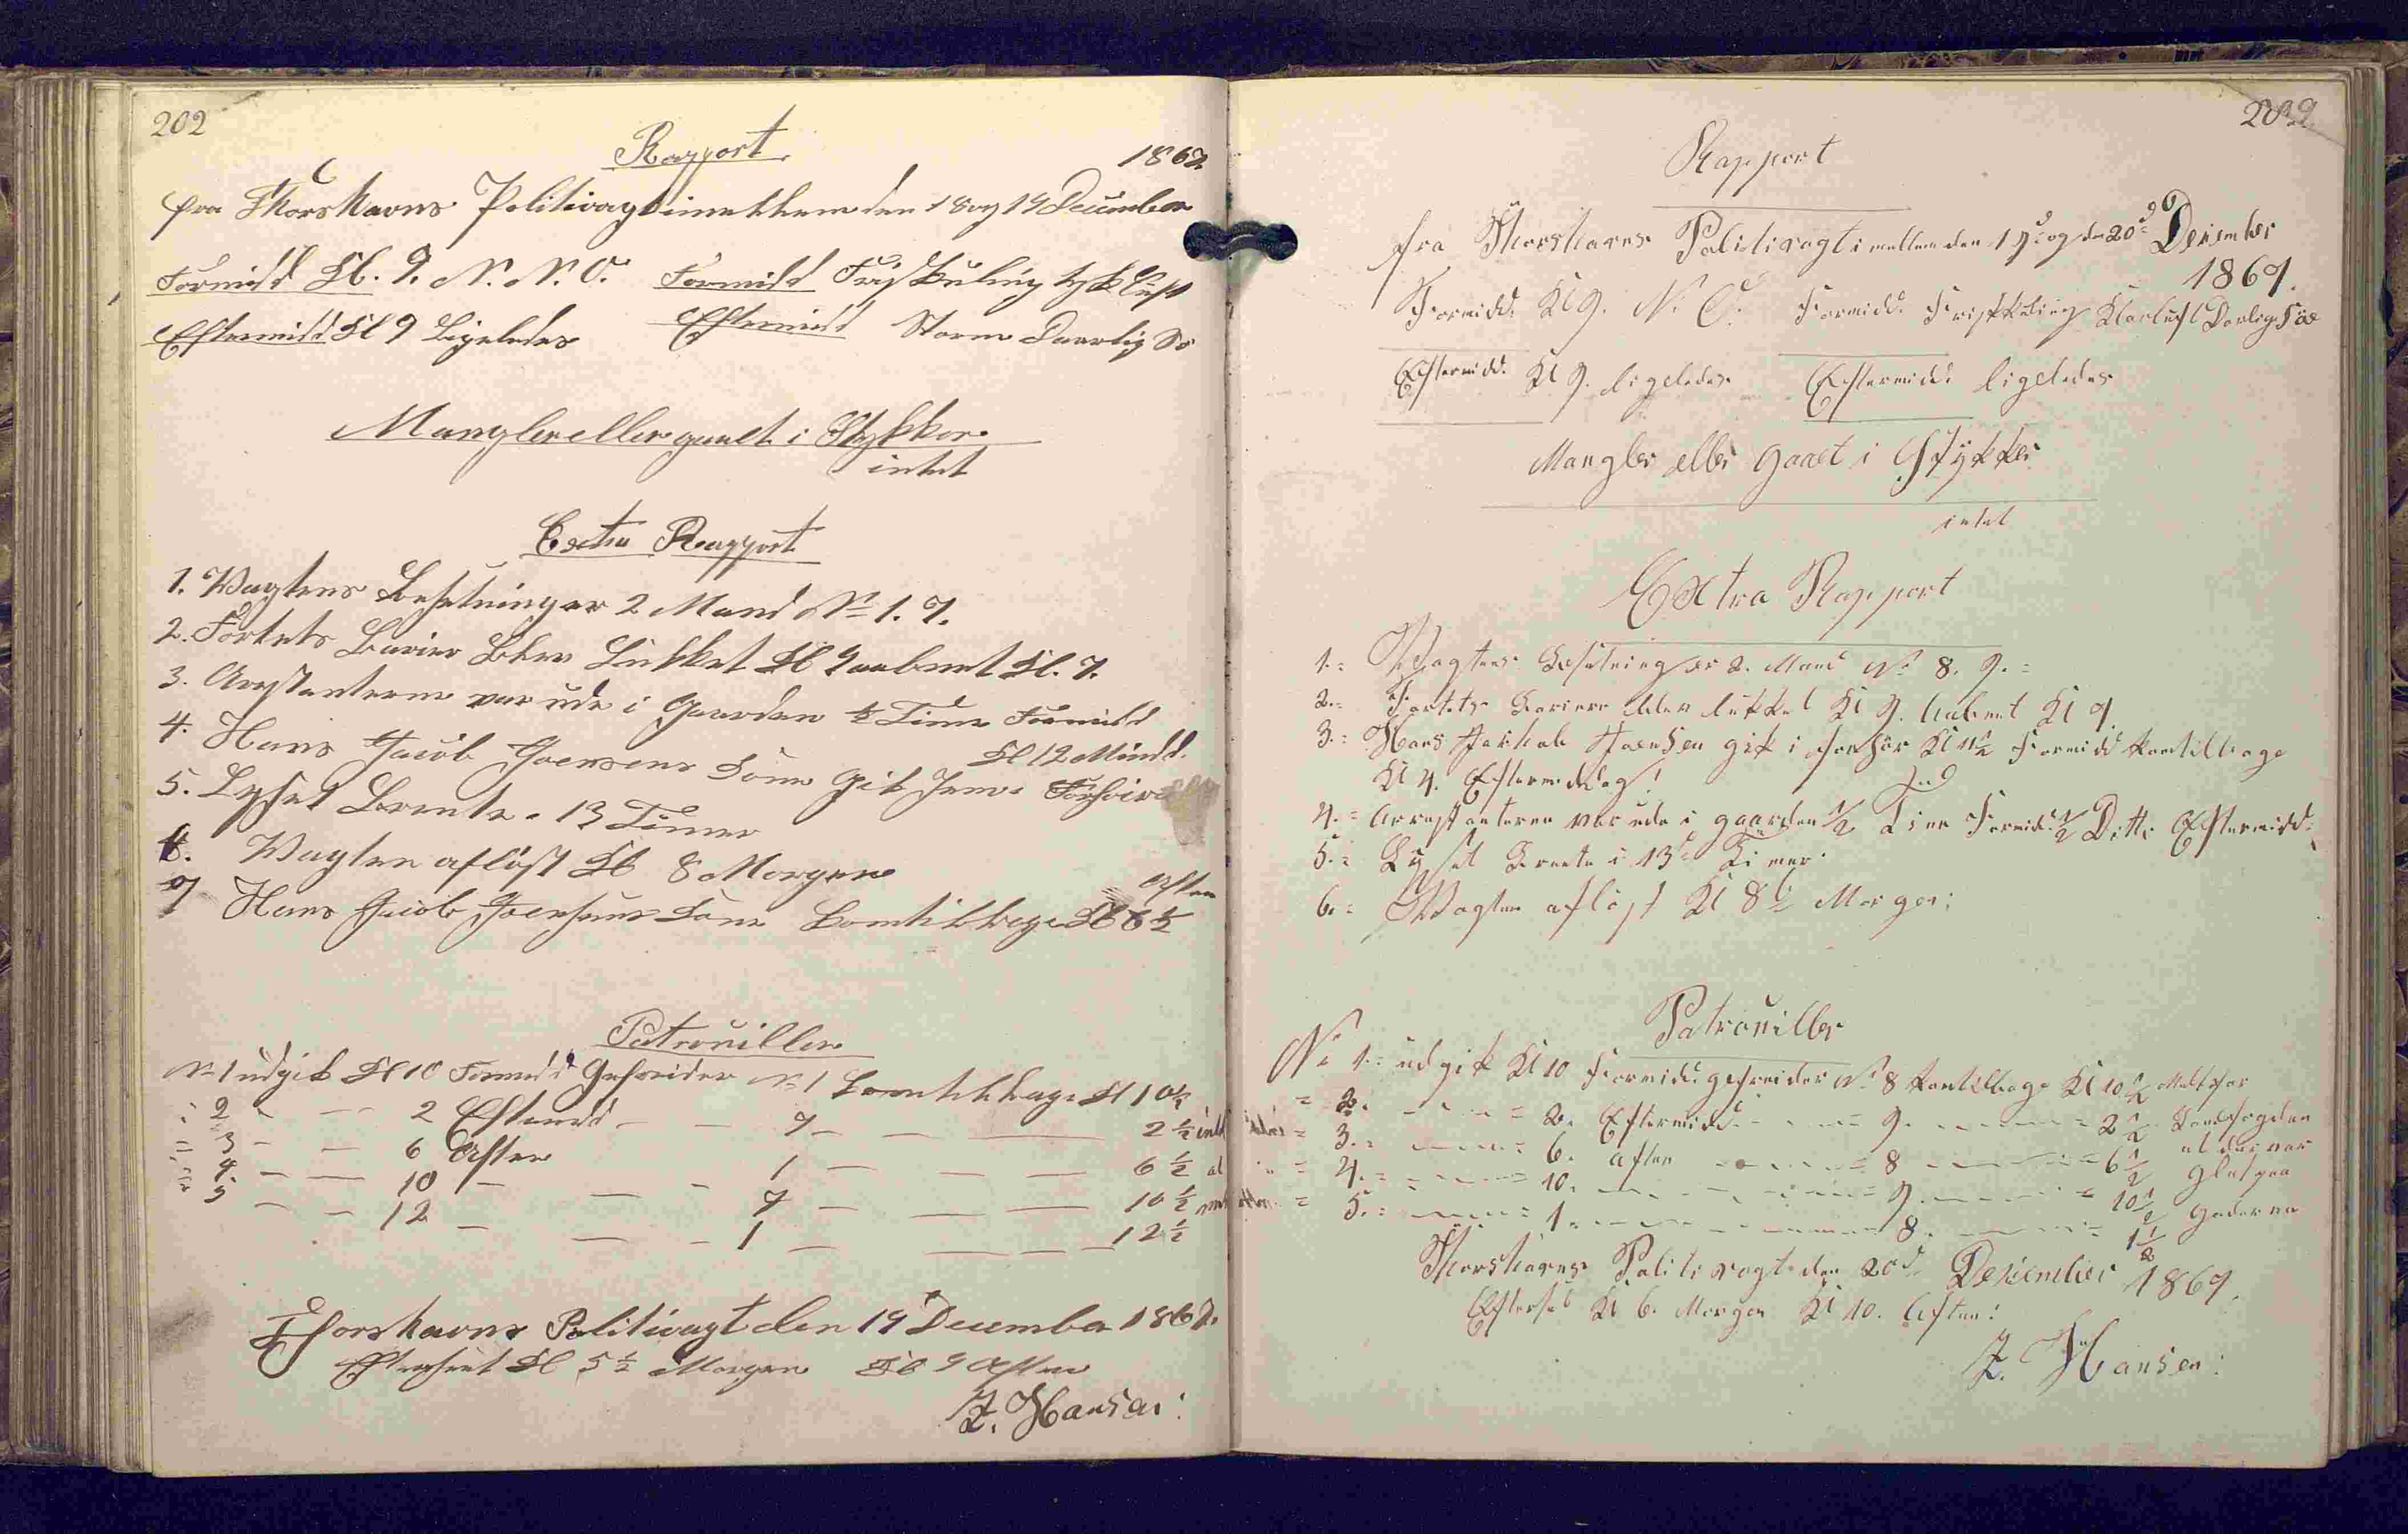 202
Rapport
1867
fra Thorshavns Politivagt imellem den 18 og 19 December
Formidd Kl. 9. N. N. O. Formidd Friskkuling tyk Luft
Eftermidd Kl 9 Ligeledes Eftermidd Storm Daarlig Sö
Mangler eller gaaet i Stykker
intet
Extra Rapport
1. Vagtens Besetning er 2 Mand No 1. 7.
2. Fortets Barier blev Lukket Kl 9 aabnet Kl. 7.
3. Arrstanterne var ude i Gaarden ½ Time Formidd
4. Hans Jacob Joensens Sönn Gik Jem i Forhöir Kl 12 Midd.
5. Lyset Brente i 13 Timer
6. Vagten aflöst Kl 8 Morgen
7 Hans Jacob Joensens Sönn kom tilbage Kl 6½ Aften
Patrouiller
No 1 udgik Kl 10 Formidd Gefreider No 1 kom tilbage Kl 10½
" 2 — — 2 Eftermd — — 7 — — 2½
" 3 — — 6 Aften 1 — — 6½
" 4. — — 10 — — 7 — — 10½
" 5 — — 12 — — 1 — — 12½
Thorshavns Politivagt den 19 December 1867.
Efterseet Kl 5½ Morgen Kl 9 Aften
Z. Hansen:
Rapport
fra Thorshavns Politivagt imellem den 19d og den 20de December
1867.
Formidd. Kl 9. N. O. Formidd. Friskkuling Klarluft Darlig Söe
Eftermidd. Kl 9. ligeledes Eftermidd. ligeledes
Mangler eller gaaet i Stykker
intet
Extra Rapport
1.= Vagtens Besetning er 2. Mand No 8. 9.=
2.= Fortets Bariere blev lukket Kl 9. Aabnet Kl 7.
3.= Hans Jackob Joensen gik i forhör Kl 11½ Formidd kom tilbage
Kl 4. Eftermiddag!
4.= Arrestanteren var ude i gaarden ½ Time Formid. ½ Ditto Eftermidd:
5.= Lyset Brente i 13de Timer.
6.= Vagten aflöst Kl 8 Morgen:
Patrouiller
No 1.= udgik Kl 10 Formidd. gefreider No 8 kom tilbage Kl 10½
= 2. — = 2. Eftermidd. — = 9. — = 2½
= 3.= — = 6. Aften — = 8 — = 6½ at der var
= 4.= — = 10. — = 9. — = 10½ Glat paa
= 5.= — = 1. — 8. — = 1½ Gaderne
Thorshavns Politivagt den 20d December 1867.
Efterset Kl 6. Morgen Kl 10. Aften!
Z. Hansen: